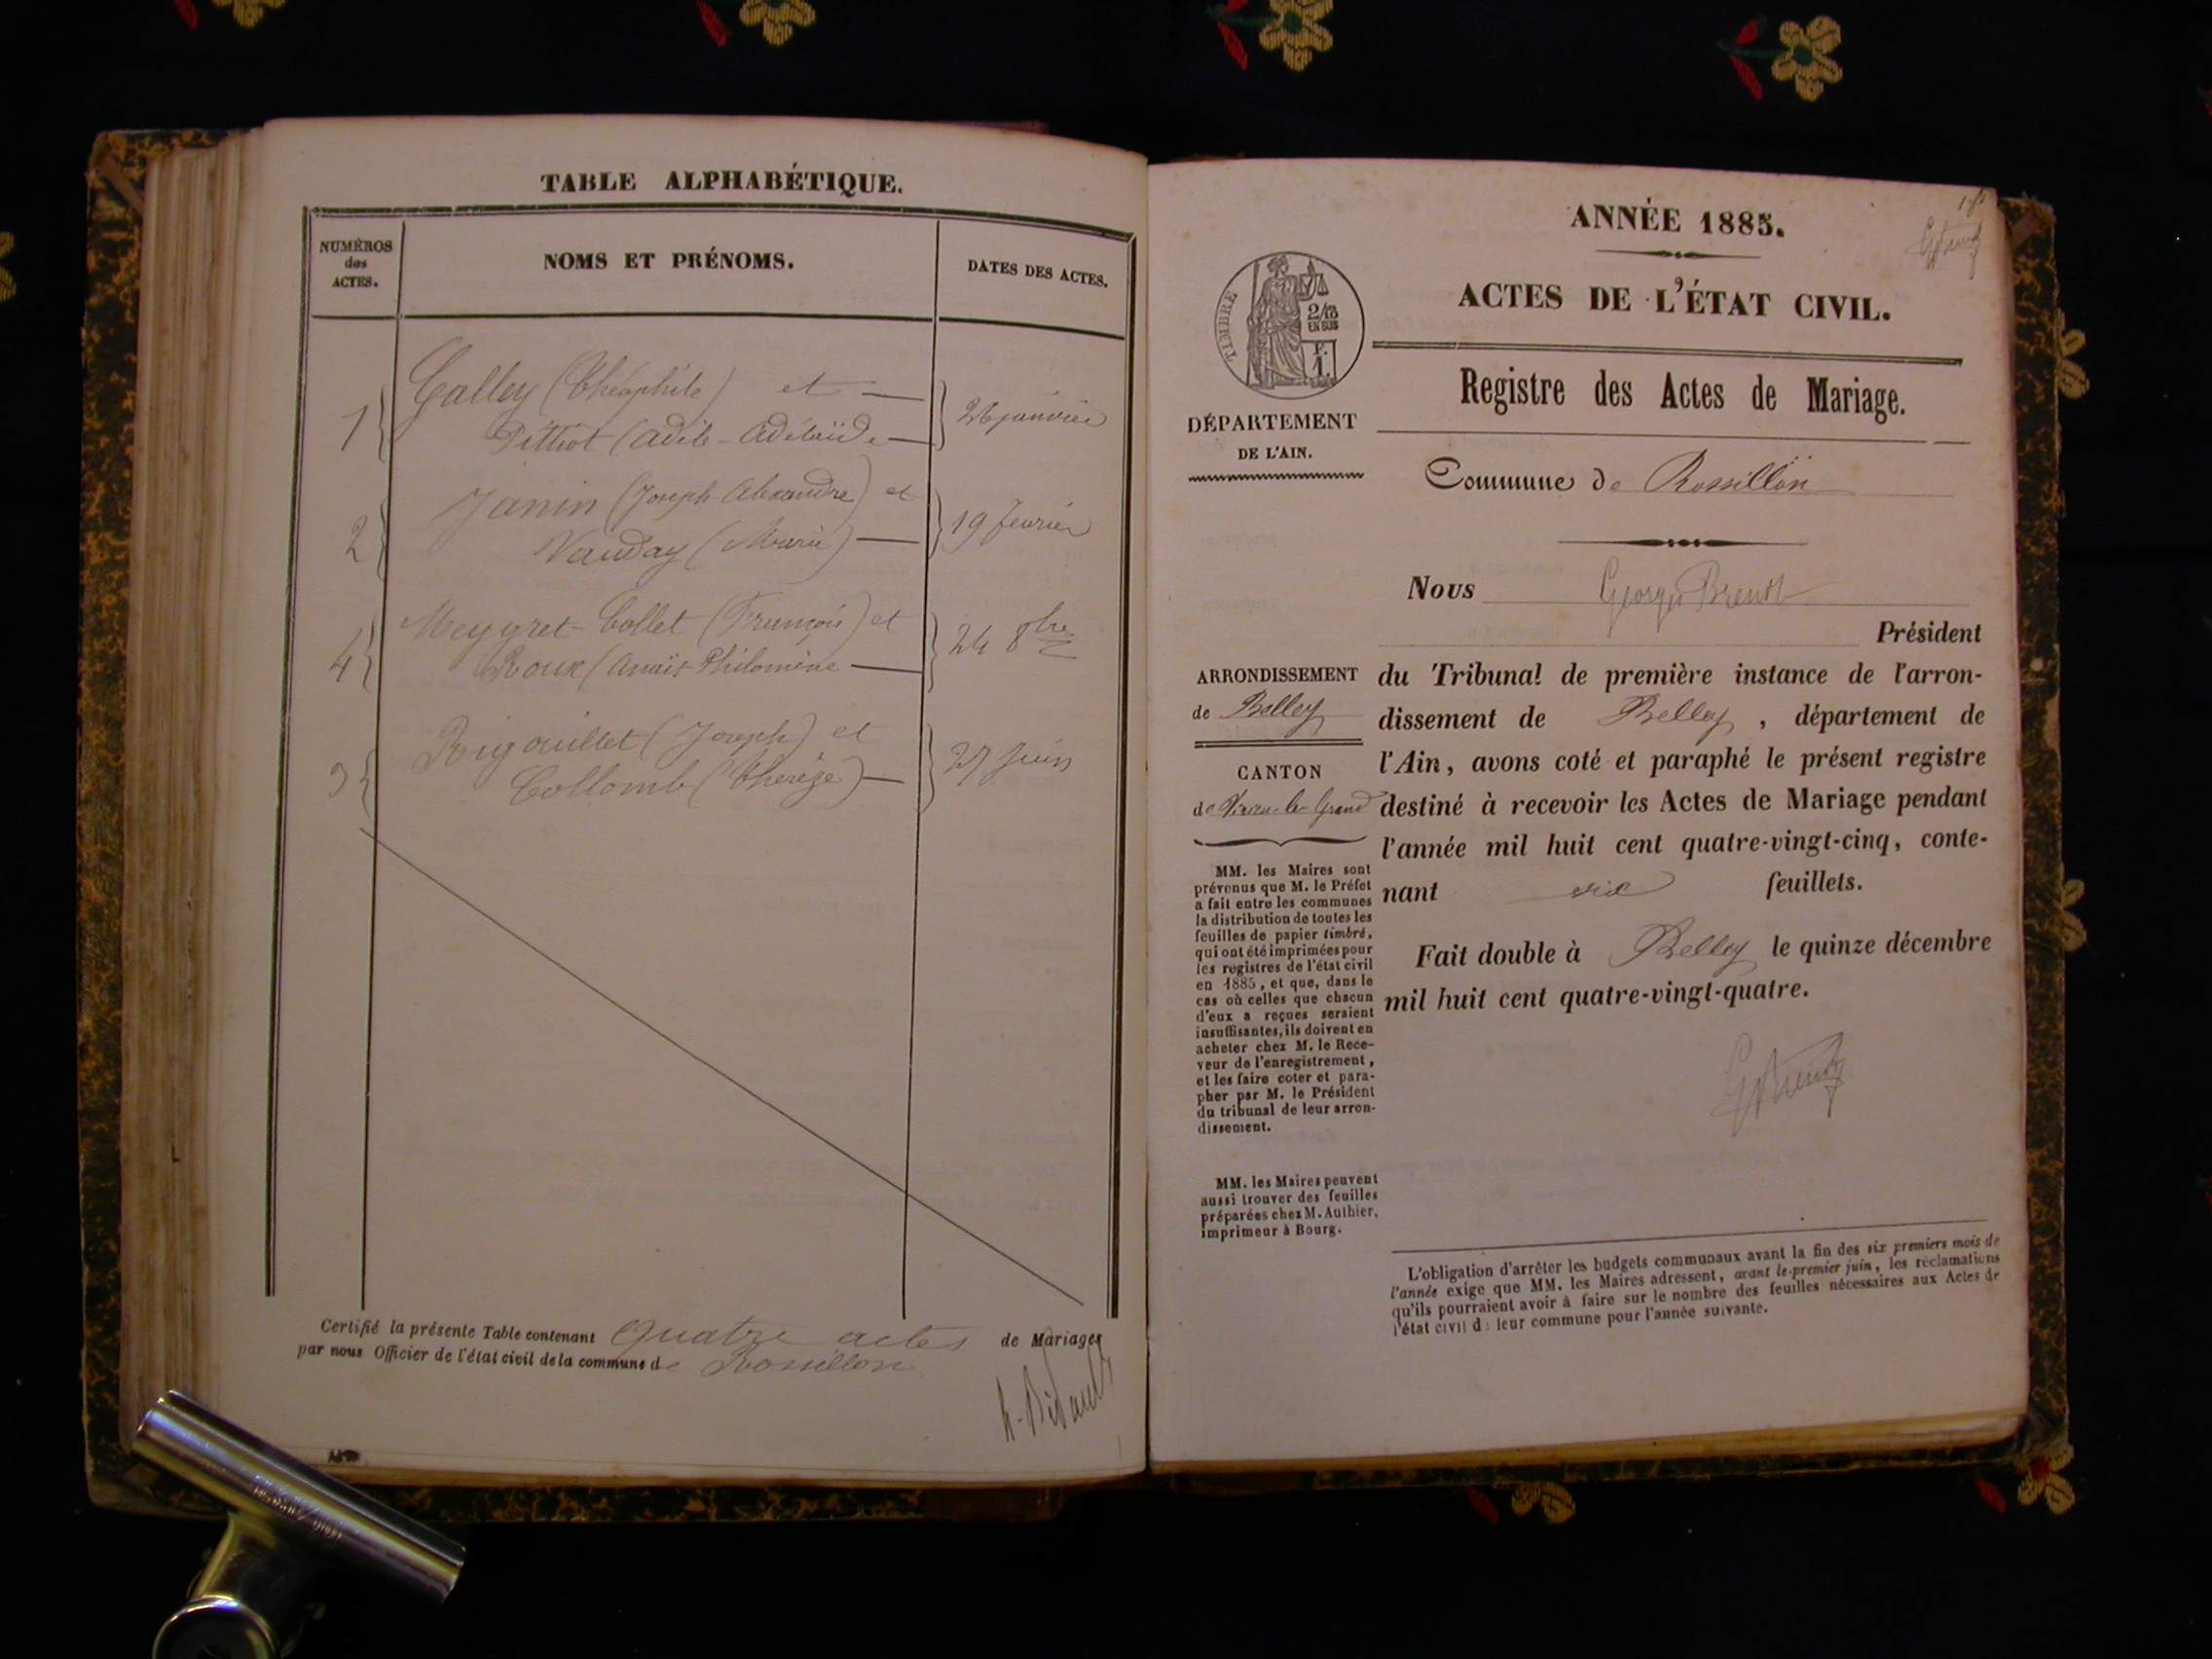 TABLE ALPHABÉTIQUE.
NUMÉROS
des
ACTES.
NOMS ET PRÉNOMS.
DATES DES ACTES.
Galley (Théophile) et
1
26 janvier
Pittiot (Adèle-Adélaïde
Janin (Joseph-Alexandre) et
2
19 février
Vauday (Marie)
Meygret-Collet (François) et
4
24 8bre
Roux (Anaïs Philomène
Rigouillet (Joseph) et
3
27 juin
Collomb (Thérèze)
Certifié la présente Table contenant quatre actes de Mariages
par nous Officier de l'état civil de la commune de Rossillon
ANNÉE 1885.
ACTES DE L'ÉTAT CIVIL.
TIMBRE
2/10
EN SUS
F.
1.
Registre des Actes de Mariage.
DÉPARTEMENT
DE L'AIN.
Commune de Rossillon
Nous Georges
Président
ARRONDISSEMENT
de Belley
CANTON
de Virieu-le-Grand
du Tribunal de première instance de l'arron-
dissement de Belley, département de
l'Ain, avons coté et paraphé le présent registre
destiné à recevoir les Actes de Mariage pendant
l'année mil huit cent quatre-vingt-cinq, conte-
nant six feuillets.
Fait double à Belley le quinze décembre
mil huit cent quatre-vingt-quatre.
MM. les Maires sont
prévenus que M. le Préfet
a fait entre les communes
la distribution de toutes les
feuilles de papier timbré,
qui ont été imprimées pour
les registres de l'état civil
en 1885, et que, dans le
cas où celles que chacun
d'eux a reçues seraient
insuffisantes, ils doivent en
acheter chez M. le Rece-
veur de l'enregistrement,
et les faire coter et para-
pher par M. le Président
du tribunal de leur arron-
dissement.
MM. les Maires peuvent
aussi trouver des feuilles
préparées chez M. Authier,
imprimeur à Bourg.
L'obligation d'arrêter les budgets communaux avant la fin des six premiers mois de
l'année exige que MM. les Maires adressent, avant le premier juin, les réclamations
qu'ils pourraient avoir à faire sur le nombre des feuilles nécessaires aux Actes de
l'état civil d: leur commune pour l'année suivante.